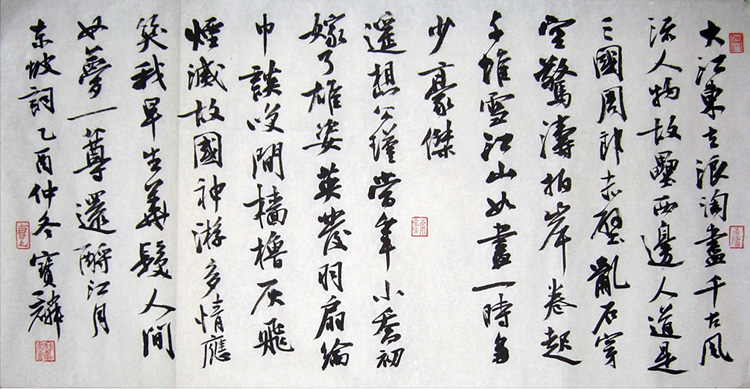 大江東去浪淘盡千古風
流人物故壘西邊人道是
三國周郎赤壁亂石穿
空驚濤拍岸卷起
千堆雪江山如畫一時多
少豪傑
遙想公瑾當年小喬初
嫁了雄姿英發羽扇綸
巾談笑間檣櫓灰飛
煙滅故國神游多情應
笑我早生華髮人間
如夢一尊還酹江月
東坡詞乙酉仲冬寶麟